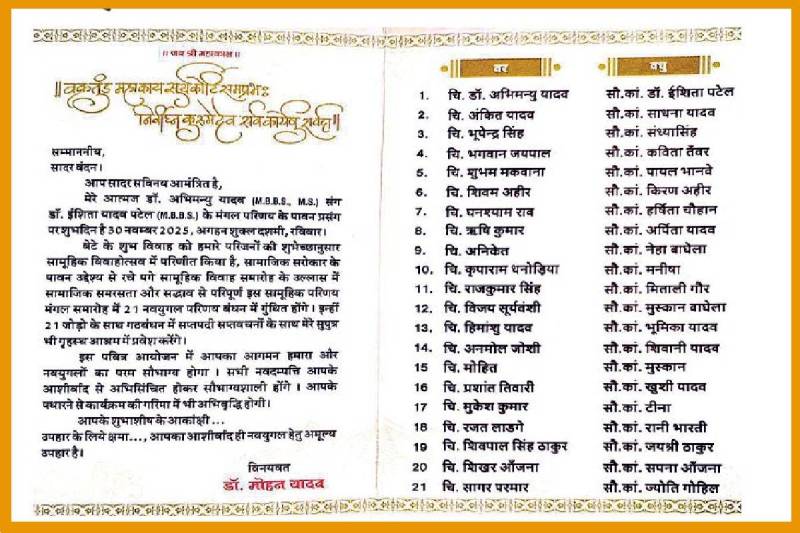 ॥ जय श्री महाकाल ॥
॥ वक्रतुंड महाकाय सूर्यकोटि समप्रभः
निर्विघ्नं कुरुमेदेव सर्वकार्येषु सर्वदा ॥
सम्माननीय,
सादर वंदन।
आप सादर सविनय आमंत्रित है,
मेरे आत्मज डॉ. अभिमन्यु यादव (M.B.B.S., M.S.) संग
डॉ. ईशिता यादव पटेल (M.B.B.S.) के मंगल परिणय के पावन प्रसंग
पर शुभदिन है 30 नवम्बर 2025, अगहन शुक्ल दशमी, रविवार।
बेटे के शुभ विवाह को हमारे परिजनों की शुभेच्छानुसार
सामूहिक विवाहोत्सव में परिणीत किया है, सामाजिक सरोकार के
पावन उद्देश्य से रचे पगे सामूहिक विवाह समारोह के उल्लास में
सामाजिक समरसता और सद्भाव से परिपूर्ण इस सामूहिक परिणय
मंगल समारोह में 21 नवयुगल परिणय बंधन में गुंथित होंगे। इन्हीं
21 जोड़ो के साथ गठबंधन में सप्तपदी सप्तवचनों के साथ मेरे सुपुत्र
भी गृहस्थ आश्रम में प्रवेश करेंगे।
इस पवित्र आयोजन में आपका आगमन हमारा और
नवयुगलों का परम सौभाग्य होगा। सभी नवदम्पत्ति आपके
आशीर्वाद से अभिसिंचित होकर सौभाग्यशाली होंगे। आपके
पधारने से कार्यक्रम की गरिमा में भी अभिवृद्धि होगी।
आपके शुभाशीष के आकांक्षी ...
उपहार के लिये क्षमा..., आपका आशीर्वाद ही नवयुगल हेतु अमूल्य
उपहार है।
विनयवत
डॉ. मोहन यादव
वर वधु
1. चि. डॉ. अभिमन्यु यादव सौ.कां. डॉ. ईशिता पटेल
2. चि. अंकित यादव सौ.कां. साधना यादव
3. चि. भूपेन्द्र सिंह सौ.कां. संध्यासिंह
4. चि. भगवान जयपाल सौ.कां. कविता तंवर
5. चि. शुभम मकवाना सौ.कां. पायल भानवे
6 चि. शिवम अहीर सौ.कां. किरण अहीर
7 चि. घनश्याम राव सौ.कां. हर्षिता चौहान
8 चि. ऋषि कुमार सौ.कां. अर्पिता यादव
9. चि. अनिकेत सौ.कां. नेहा बाघेला
10. चि. कृपाराम धनोड़िया सौ.कां. मनीषा
11. चि. राजकुमार सिंह सौ.कां. मिताली गौर
12. चि. विजय सूर्यवंशी सौ.कां. मुस्कान बाघेला
13. चि. हिमांशु यादव सौ.कां. भूमिका यादव
14. चि. अनमोल जोशी सौ.कां. शिवानी यादव
15 चि. मोहित सौ.कां. मुस्कान
16 चि. प्रशांत तिवारी सौ.कां. खुशी यादव
17 चि. मुकेश कुमार सौ.कां. टीना
18 चि. रजत लाडगे सौ.कां. रानी भारती
19 चि. शिवपाल सिंह ठाकुर सौ.कां. जयश्री ठाकुर
20 चि. शिखर आँजना सौ.कां. सपना आँजना
21 चि. सागर परमार सौ.कां. ज्योति गोहिल